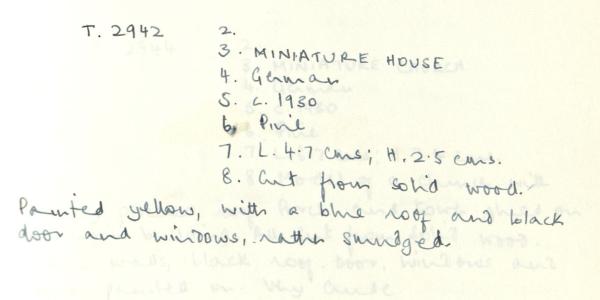 T. 2942 2.
3. MINIATURE HOUSE
4. German
5. c. 1930
6. Pine
7. L. 4.7 cms; H. 2.5 cms.
8. Cut from solid wood.
Painted yellow, with a blue roof and black
door and windows, rather smudged.